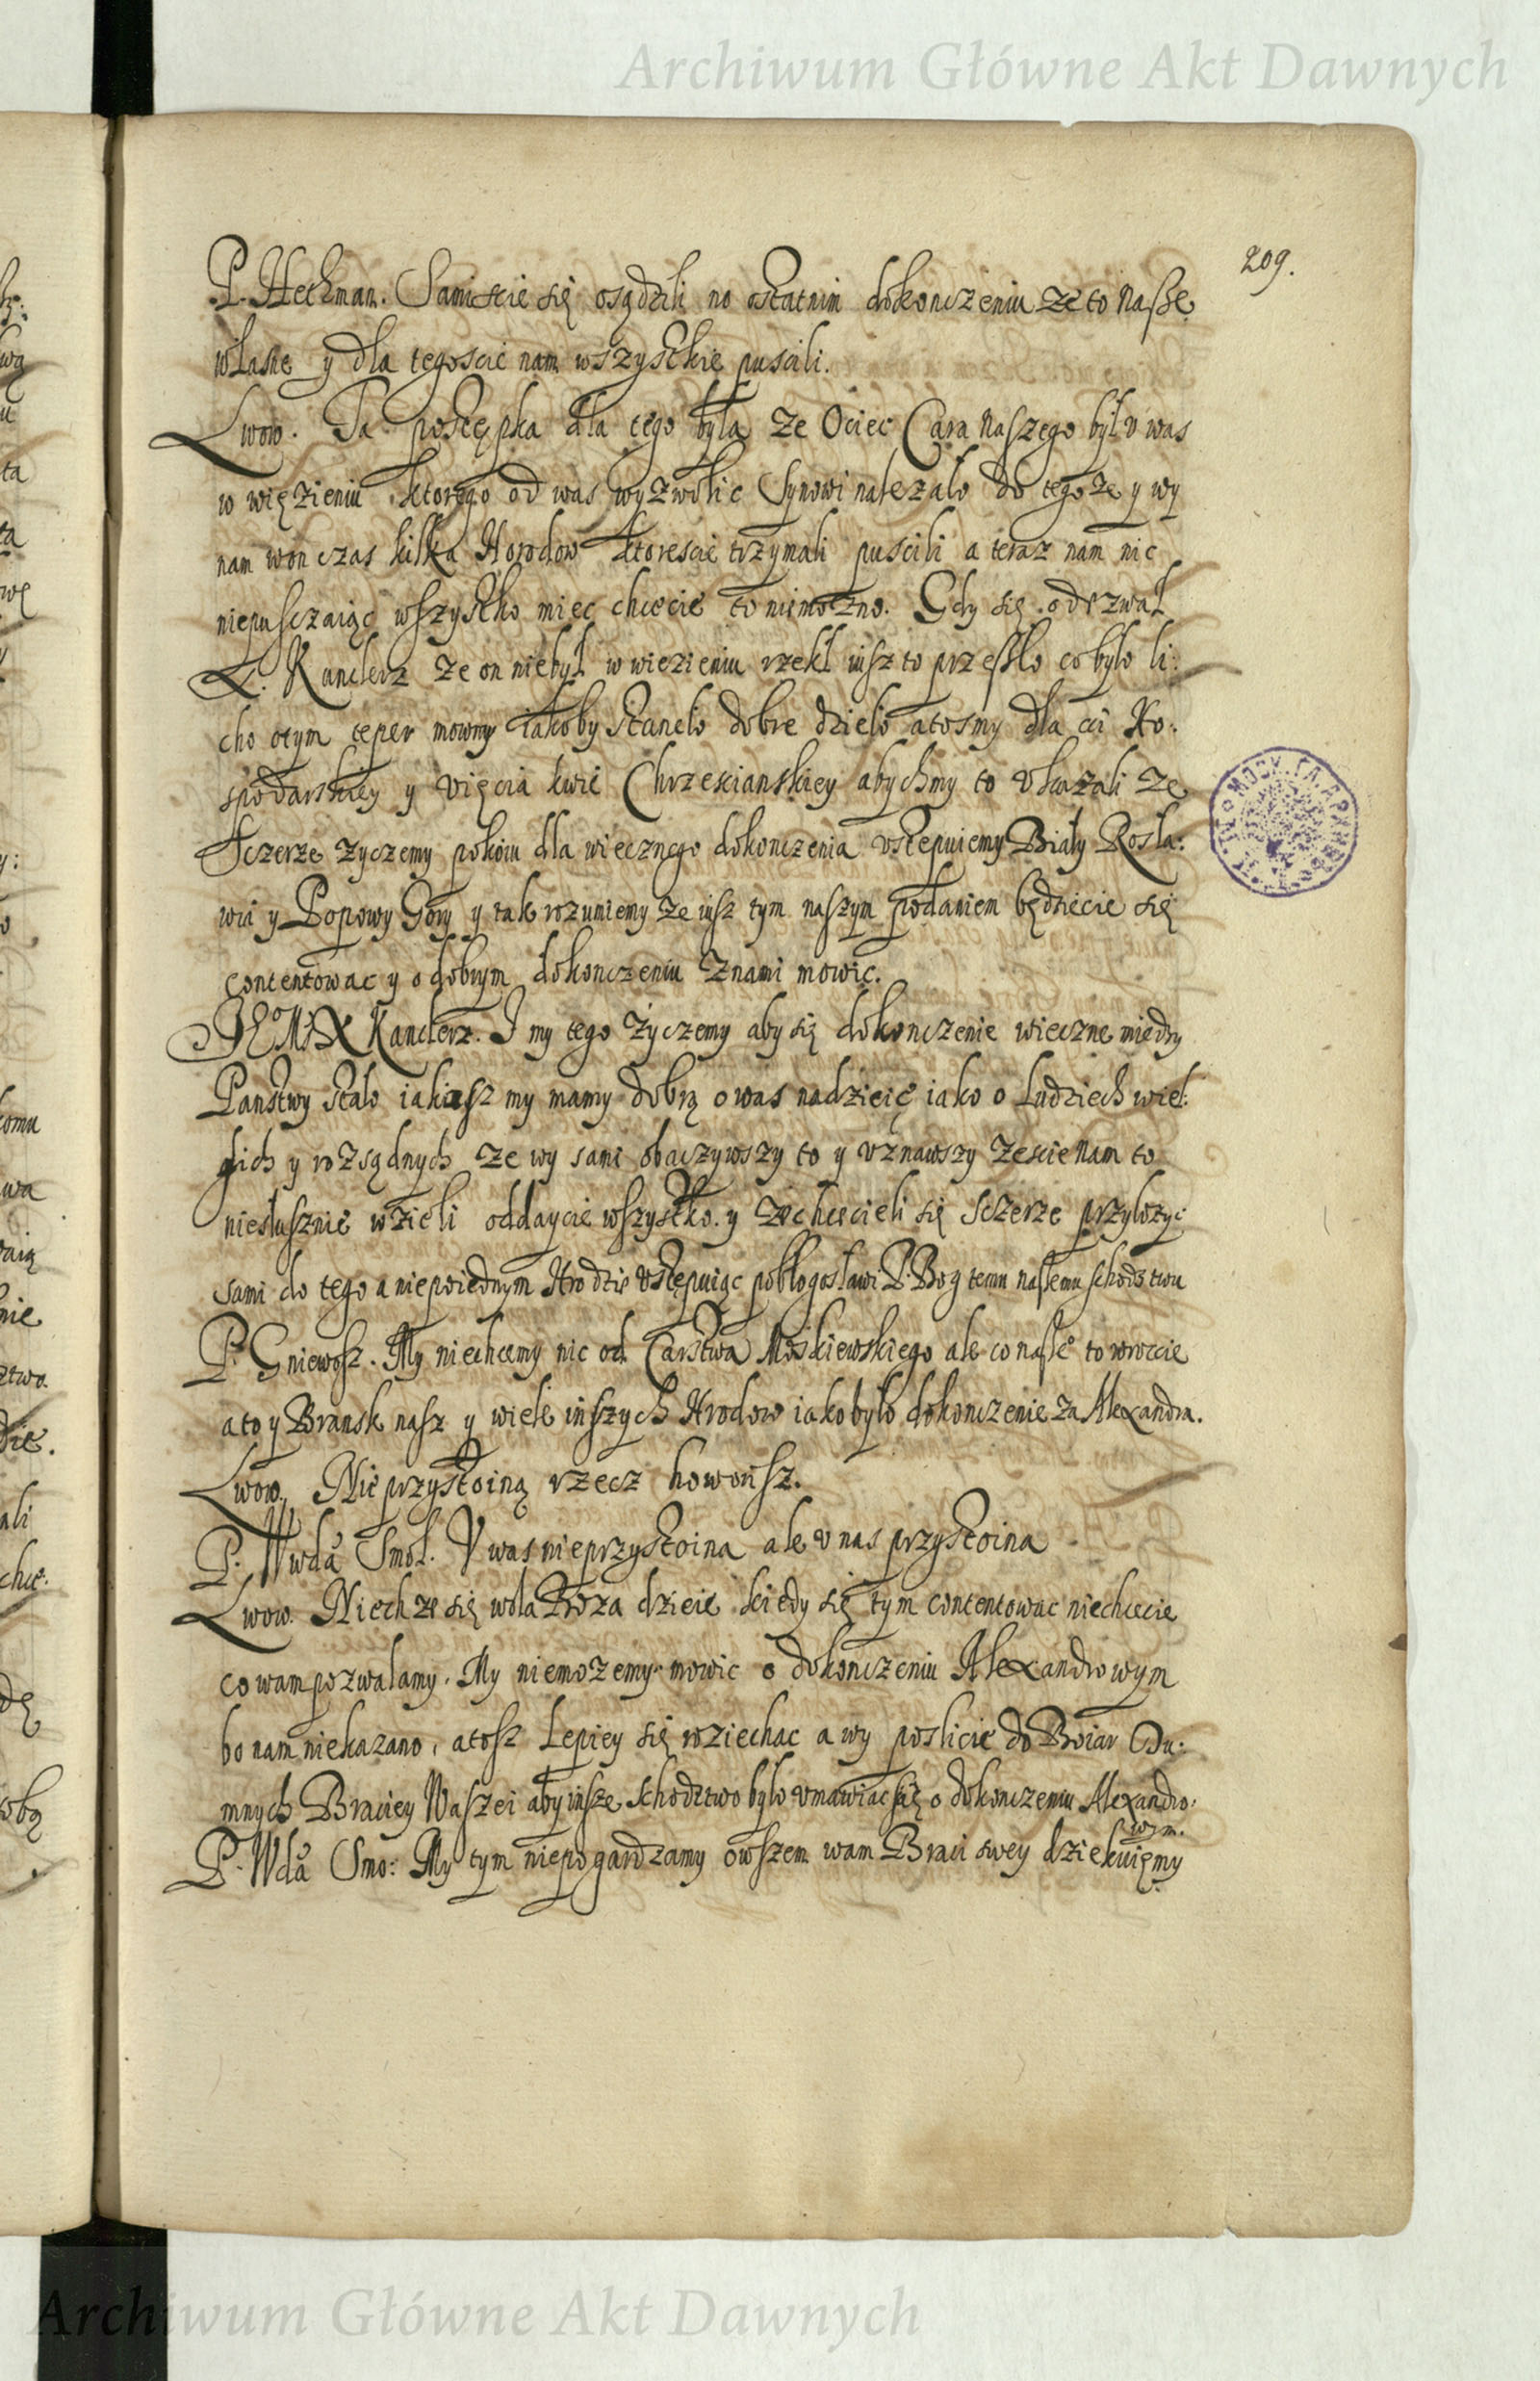 Archiwum Główne Akt Dawnych
209.
P. Hethman. Samiscie się osądzili no ostatnim dokonczeniu ze to nasze
własne y dla tegoscie nam wszystkie puscili.
Lwow. Ta postępka dla tego była ze Ociec Cara naszego był v was
w więzieniu ktorego od was wyzwolic Synowi nalezało do tego ze y wy
nam won czas kilka Horodow ktorescie trzymali puscili a teraz nam nic
niepusczaiąc wszystko miec chcecie to niemozno. Gdy się odezwał
X. Kanclerz ze on niebył w wiezieniu rzekł iusz to przeszło co było li:
cho otym teper mowmy iakoby stanęło dobre dzieło atosmy dla ci Ho:
spodarskiey y vięcia kwie Chrzescianskiey abychmy to vkazali ze
sczerze zyczemy pokoiu dla wiecznego dokonczenia vstepuiemy Biały Rosła:
wia y Popowy Gory y tak rozumiemy ze iusz tym naszym podaniem będziecie się
contentowac y o dobrym dokonczeniu znami mowic.
JEoMs X Kanclerz. I my tego życzemy aby się dokonczenie wieczne miedzy
Panstwy stało iakiesz my mamy dobrą o was nadzieię iako o Ludziech wiel:
gich y rozsądnych ze wy sami obaczywszy to y vznawszy zescie nam to
niesłusznie wzieli oddaycie wszystko. y zechcecieli się sczerze przyłozyc
sami do tego a niepoiednym Hrodzie vstępuiąc pobłogosławi P. Bog temu naszemu schodstwu
P. Gniewosz. My niechcemy nic od Carstwa Moskiewskiego ale co nasze to wroccie
ato y Bransk nasz y wiele inszych Hrodow iako było dokonczenie za Alexandra.
Lwow. Nieprzystoiną rzecz howorisz.
P. Wwda Smol. V was nieprzystoina ale v nas przystoina
Lwow. Niech ze się wola Boza dzieie kiedy się tym contentowac niechcecie
co wam pozwalamy. My niemozemy mowic o dokonczeniu Alexandrowym
bo nam niekazano, atosz Lepiey się roziechac a wy poslicie do Boiar Du:
mnych Braciey Waszei aby insze schodztwo było vmawiac się o dokonczeniu Alexandro:
wym.
P. Wda Smo: My tym niepogardzamy owszem wam Braci swey dziekuięmy
Archiwum Główne Akt Dawnych